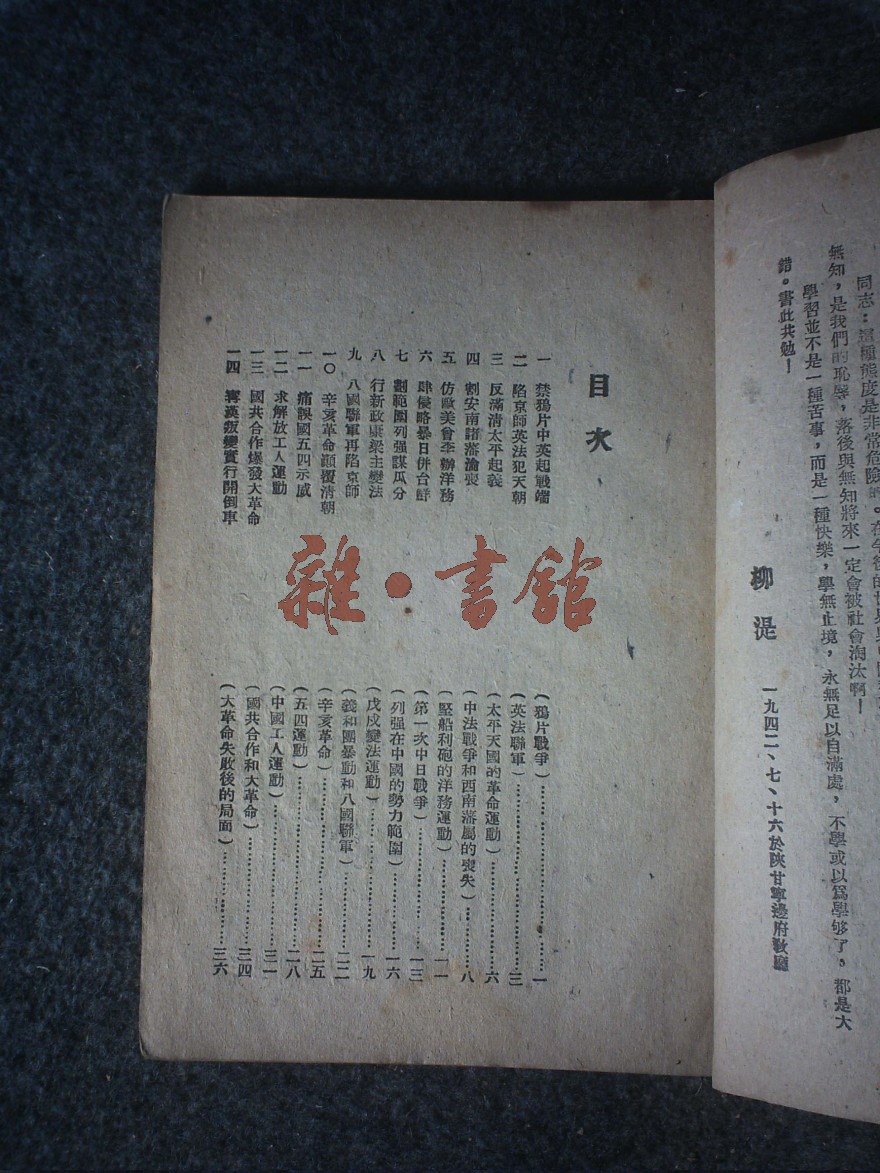 同志：這種態度是非常危險的。在今後的世界與中國
無知，是我們的恥辱，落後與無知將來一定會被社會淘汰啊！
學習並不是一種苦事，而是一種快樂，學無止境，永無足以自滿處，不學或以爲學够了，都是大
錯。書此共勉！
柳湜 一九四二、七、十六於陝甘寧邊府敎廳
目次
一 禁鴉片中英起戰端（鴉片戰爭）……一
二 陷京師英法犯天朝（英法聯軍）……三
三 反滿淸太平起義（太平天國的革命運動）……六
四 割安南諸藩淪喪（中法戰爭和西南藩屬的喪失）……八
五 仿歐美曾李辦洋務（堅船利砲的洋務運動）……一一
六 肆侵略暴日併台鮮（第一次中日戰爭）……一三
七 劃範圍列强謀瓜分（列强在中國的勢力範圍）……一六
八 行新政康梁主變法（戊戌變法運動）……一九
九 八國聯軍再陷京師（義和團暴動和八國聯軍）……二二
一〇 辛亥革命顚覆清朝（辛亥革命）……二五
一一 痛誤國五四示威（五四運動）……二八
一二 求解放工人運動（中國工人運動）……三一
一三 國共合作爆發大革命（國共合作和大革命）……三四
一四 寗漢叛變實行開倒車（大革命失敗後的局面）……三六
雜·書館